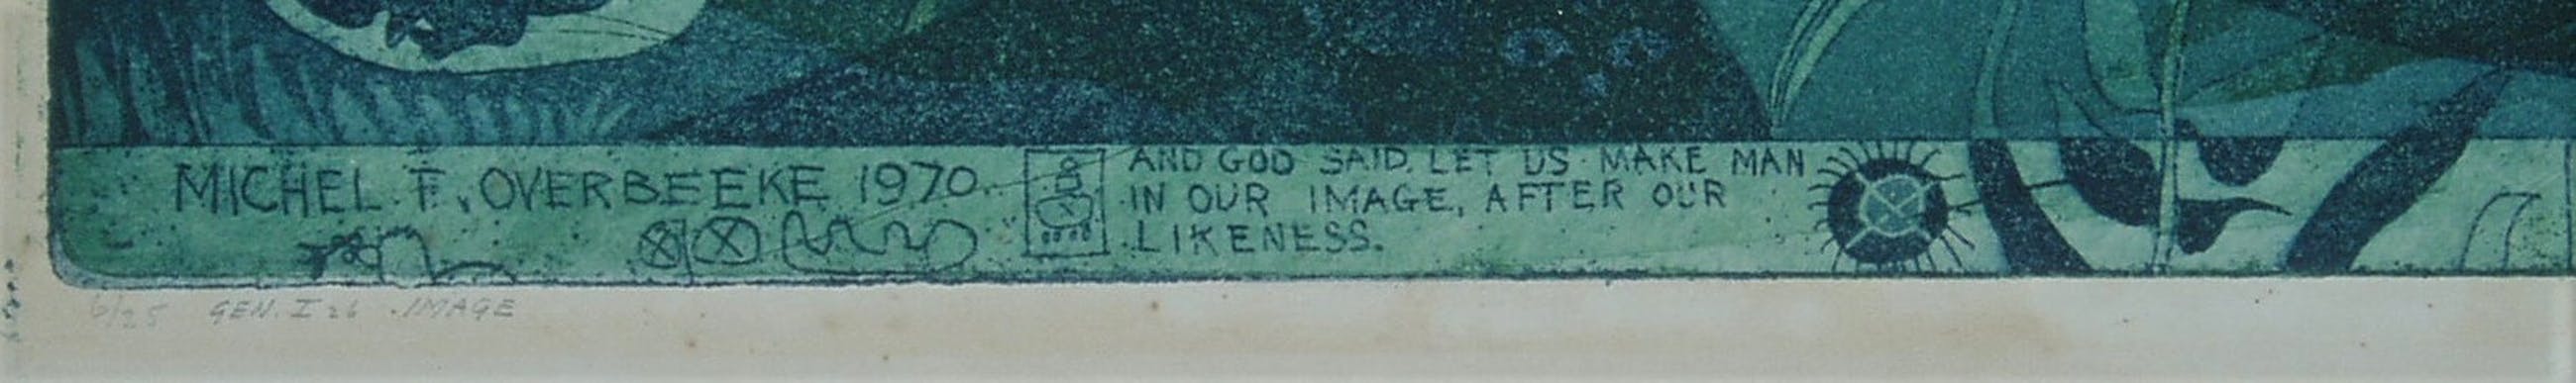 MICHEL T. OVERBEEKE 1970.
AND GOD SAID. LET US MAKE MAN
IN OUR IMAGE, AFTER OUR
LIKENESS.
6/25 GEN. I 26 . IMAGE